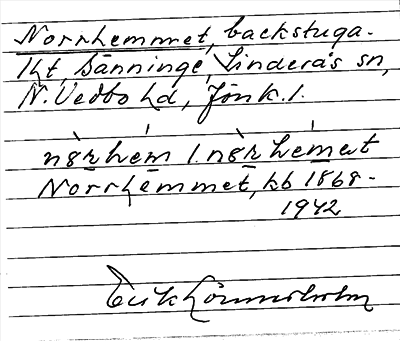 Norrhemmet, backstuga.
1ht, Sänninge, Linderås sn,
N. Vedbo hd, Jönk. l.
nɞrhem l. nɞrhemet
Norrhemmet, kb 1868-
1942
Erik Lönnerholm